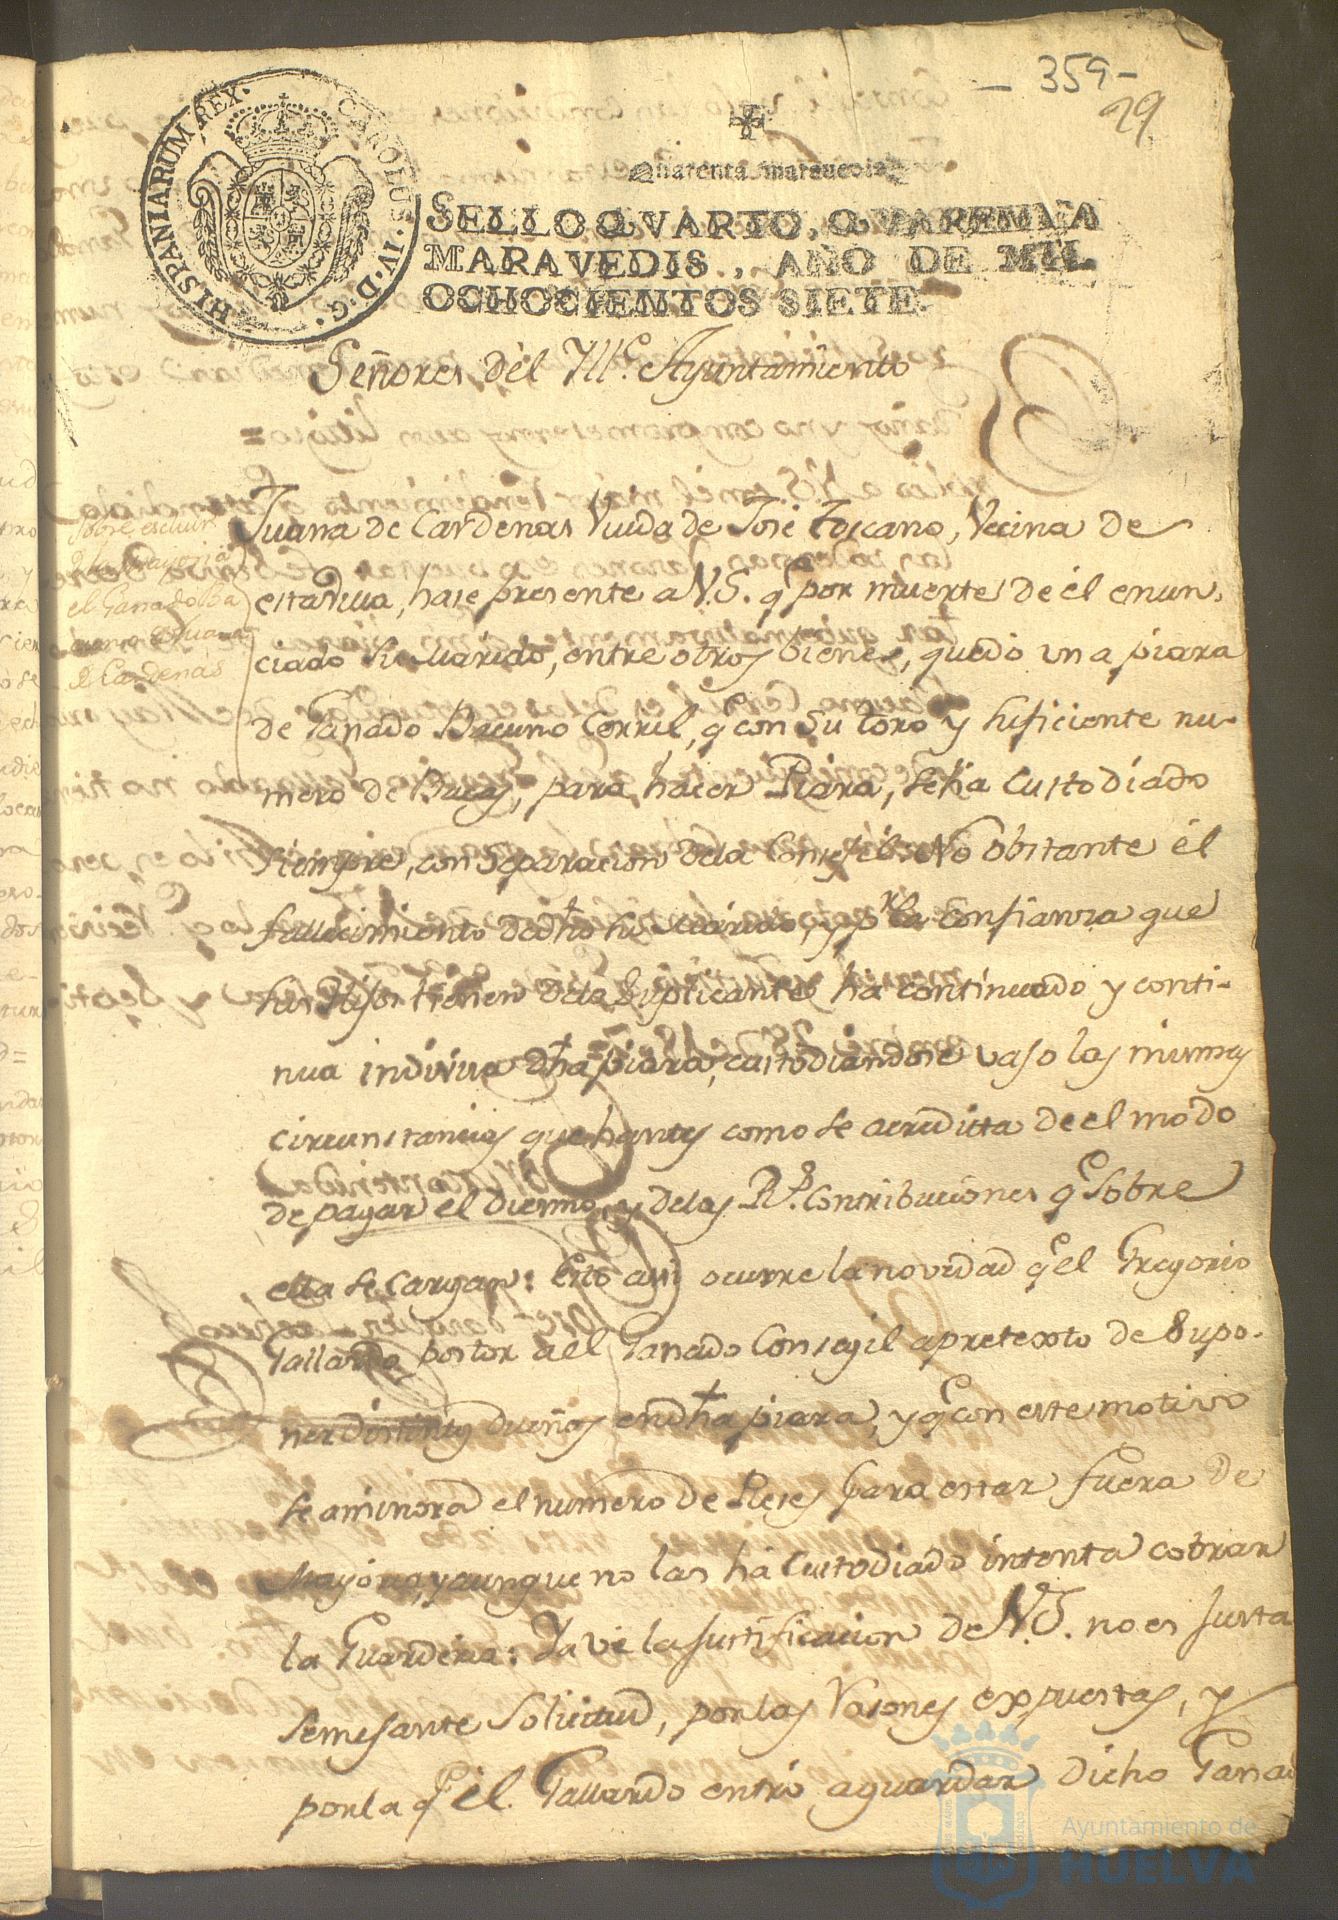 - 359 -
29
HISPANIARUM REX. CAROLUS. IV. D. G.
Quarenta maravedis
SELLO QVARTO, QVARENTA
MARAVEDIS, AÑO DE MIL
OCHOCIENTOS SIETE.
Señores del Ill.e Ayuntamiento
Sobre escluir
de la mayoria
el Ganado Ba
cuno de Juana
de Cardenas
Juana de Cardenas Viuda de José Toscano, Vecina de
esta Villa, hase presente a V.S. q.e por muerte de él enun,
ciado su Marido, entre otros bienes, quedó una piara
de Ganado Bacuno Cerril, q.e con su toro y suficiente nu-
mero de Bacas, para hacer Piara, se ha Custodiado
siempre, con separacion dela Consegil: No obstante él
fallecimiento de dho su Marido, y p.r la confianza que
sus Hijos tienen dela Suplicante ha continuado y conti-
nua indivisa dha piara, custodiandose vaso las mismas
circunstancias que hantes como se acreditta de el modo
de pagar el Diezmo, y delas R.s Contribuciones q.e sobre
ella se cargan: Esto assi ocurre la novedad q.e el Gregorio
Gallardo postor a el Ganado Consegil a pretexto de Supo-
ner distintos dueños en dha piara, y q.e con este motivo
se aminora el numero de Reses para estar fuera de
Mayoria, y aunque no las há Custodiado intenta cobrar
la Guarderia: Ya ve la justificacion de V.S. no es Justa
semejante Solicitud, por las Rasones expuestas, y
por la q.e él Gallardo entró a guardar dicho Ganad
Ayuntamiento de
HUELVA